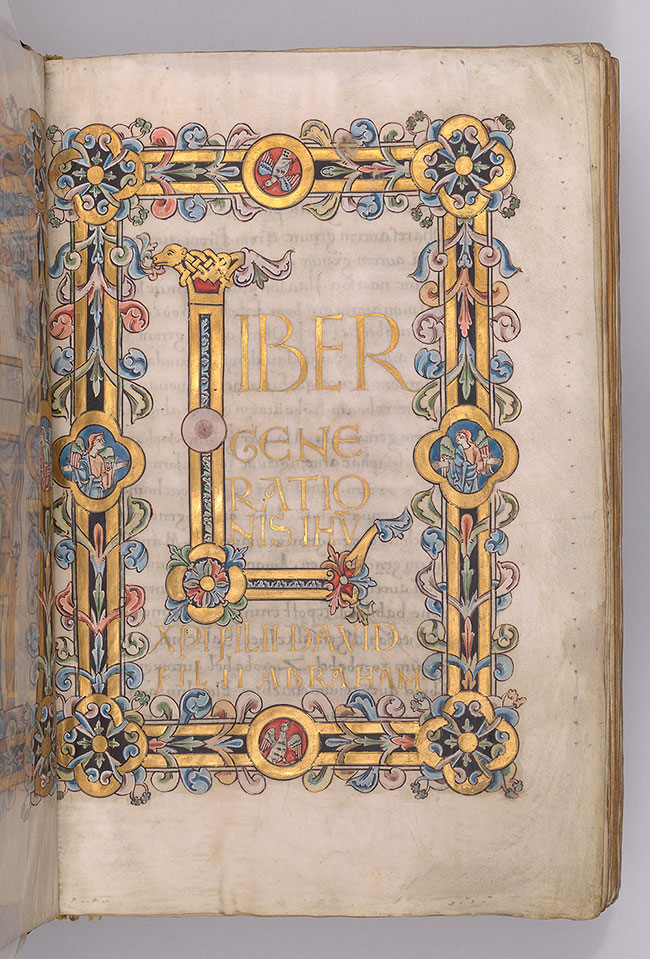 3
LIBER
GENE
RATIO
NIS·IHV
XPI FILII DAVID
FILII ABRAHAM